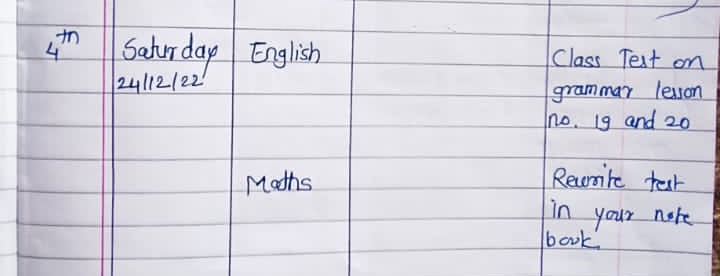 4th Saturday English Class Test on
24/12/22 grammar lesson
no. 19 and 20
Maths Rewrite test
in your note
book.